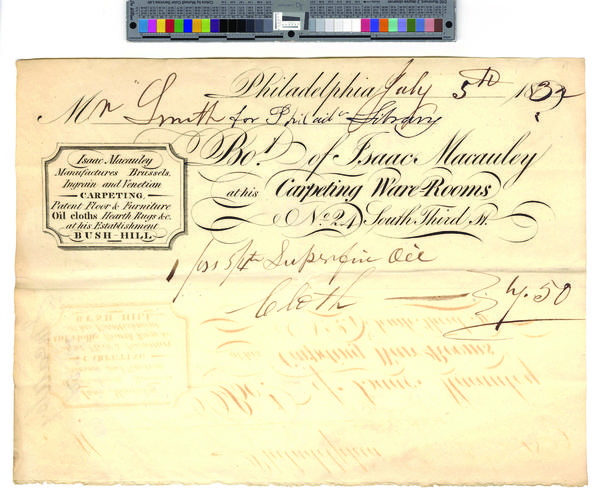 Philadelphia July 5th 1832
Mr Smith for Philada Library
Bot. of Isaac Macauley
at his Carpeting Ware-Rooms
No. 24 South Third St.
Isaac Macauley
Manufactures Brussels,
Ingrain and Venetian
CARPETING,
Patent Floor & Furniture
Oil cloths Hearth Rugs &c.
at his Establishment
BUSH-HILL
1 5/4 Superfine Oil
Cloth 50